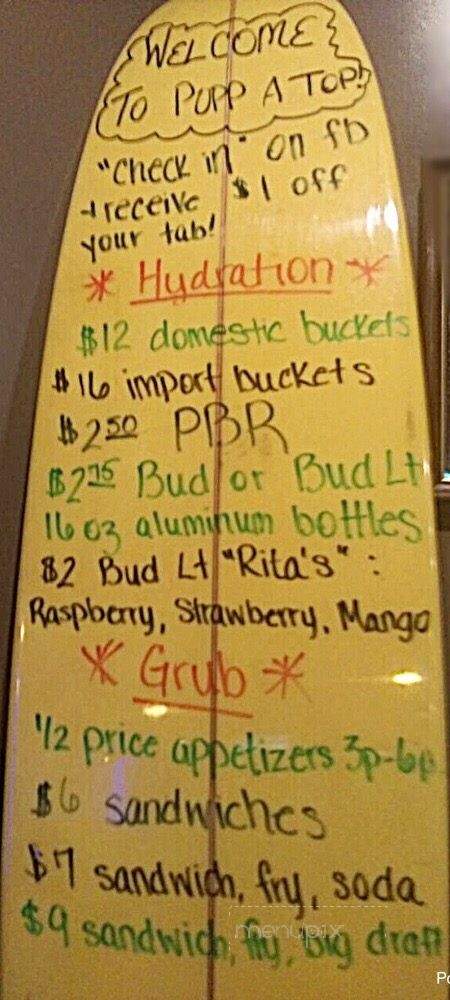 WELCOME
TO PUPP A TOP!
"Check in" on fb
+receive $1 off
your tab!
* Hydration *
$12 domestic buckets
$16 import buckets
$2 50 PBR
$2 75 Bud or Bud Lt
16 oz aluminum bottles
$2 Bud Lt "Rita's" :
Raspberry, Strawberry, Mango
* Grub *
1/2 price appetizers 3p-6p
$6 sandwiches
$7 sandwich, fry, soda
$9 sandwich, fry, big draft
menupix
Po